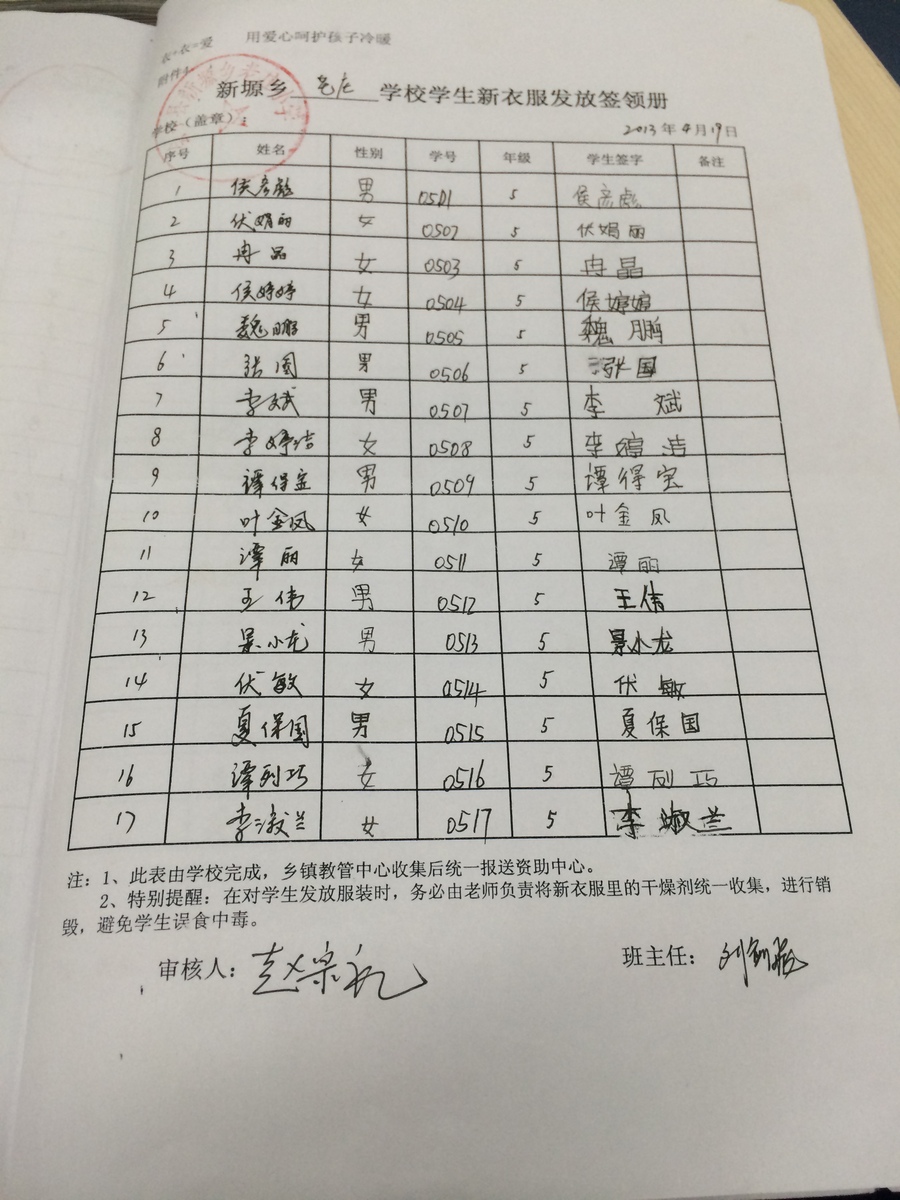 衣+衣=爱 用爱心呵护孩子冷暖
附件1
新塬乡 学校学生新衣服发放签领册
学校（盖章）： 2013年4月19日
序号 姓名 性别 学号 年级 学生签字 备注
1 侯彦彪 男 0501 5 侯彦彪
2 伏娟丽 女 0502 5 伏娟丽
3 冉晶 女 0503 5 冉晶
4 侯婷婷 女 0504 5 侯婷婷
5 魏鹏 男 0505 5 魏鹏
6 张国 男 0506 5 张国
7 李斌 男 0507 5 李斌
8 李婷洁 女 0508 5 李婷洁
9 谭得宝 男 0509 5 谭得宝
10 叶金凤 女 0510 5 叶金凤
11 谭丽 女 0511 5 谭丽
12 王伟 男 0512 5 王伟
13 景小龙 男 0513 5 景小龙
14 伏敏 女 0514 5 伏敏
15 夏保国 男 0515 5 夏保国
16 谭列巧 女 0516 5 谭列巧
17 李淑兰 女 0517 5 李淑兰
注：1、此表由学校完成，乡镇教管中心收集后统一报送资助中心。
2、特别提醒：在对学生发放服装时，务必由老师负责将新衣服里的干燥剂统一收集，进行销
毁，避免学生误食中毒。
审核人：赵宗礼 班主任：